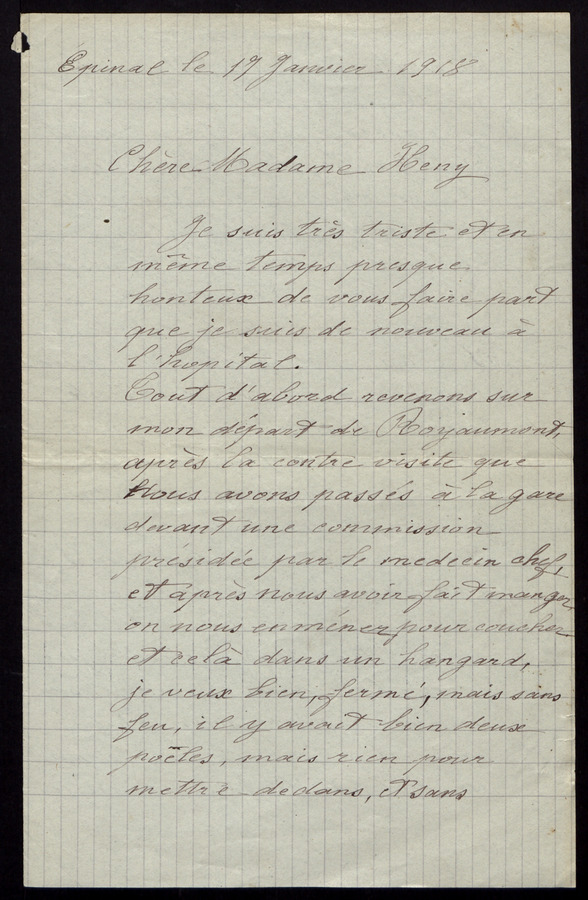 Epinal le 17 Janvier 1918
Chère Madame Heny
Je suis très triste et en
même temps presque
honteux de vous faire part
que je suis de nouveau à
l'hopital.
Tout d'abord revenons sur
mon départ de Royaumont,
après la contre visite que
Nous avons passés à la gare
devant une commission
présidée par le medecin chef,
et après nous avoir fait manger
on nous enménez pour coucher
et celà dans un hangard,
je veux bien, fermé, mais sans
feu, il y avait bien deux
poëles, mais rien pour
mettre dedans, et sans